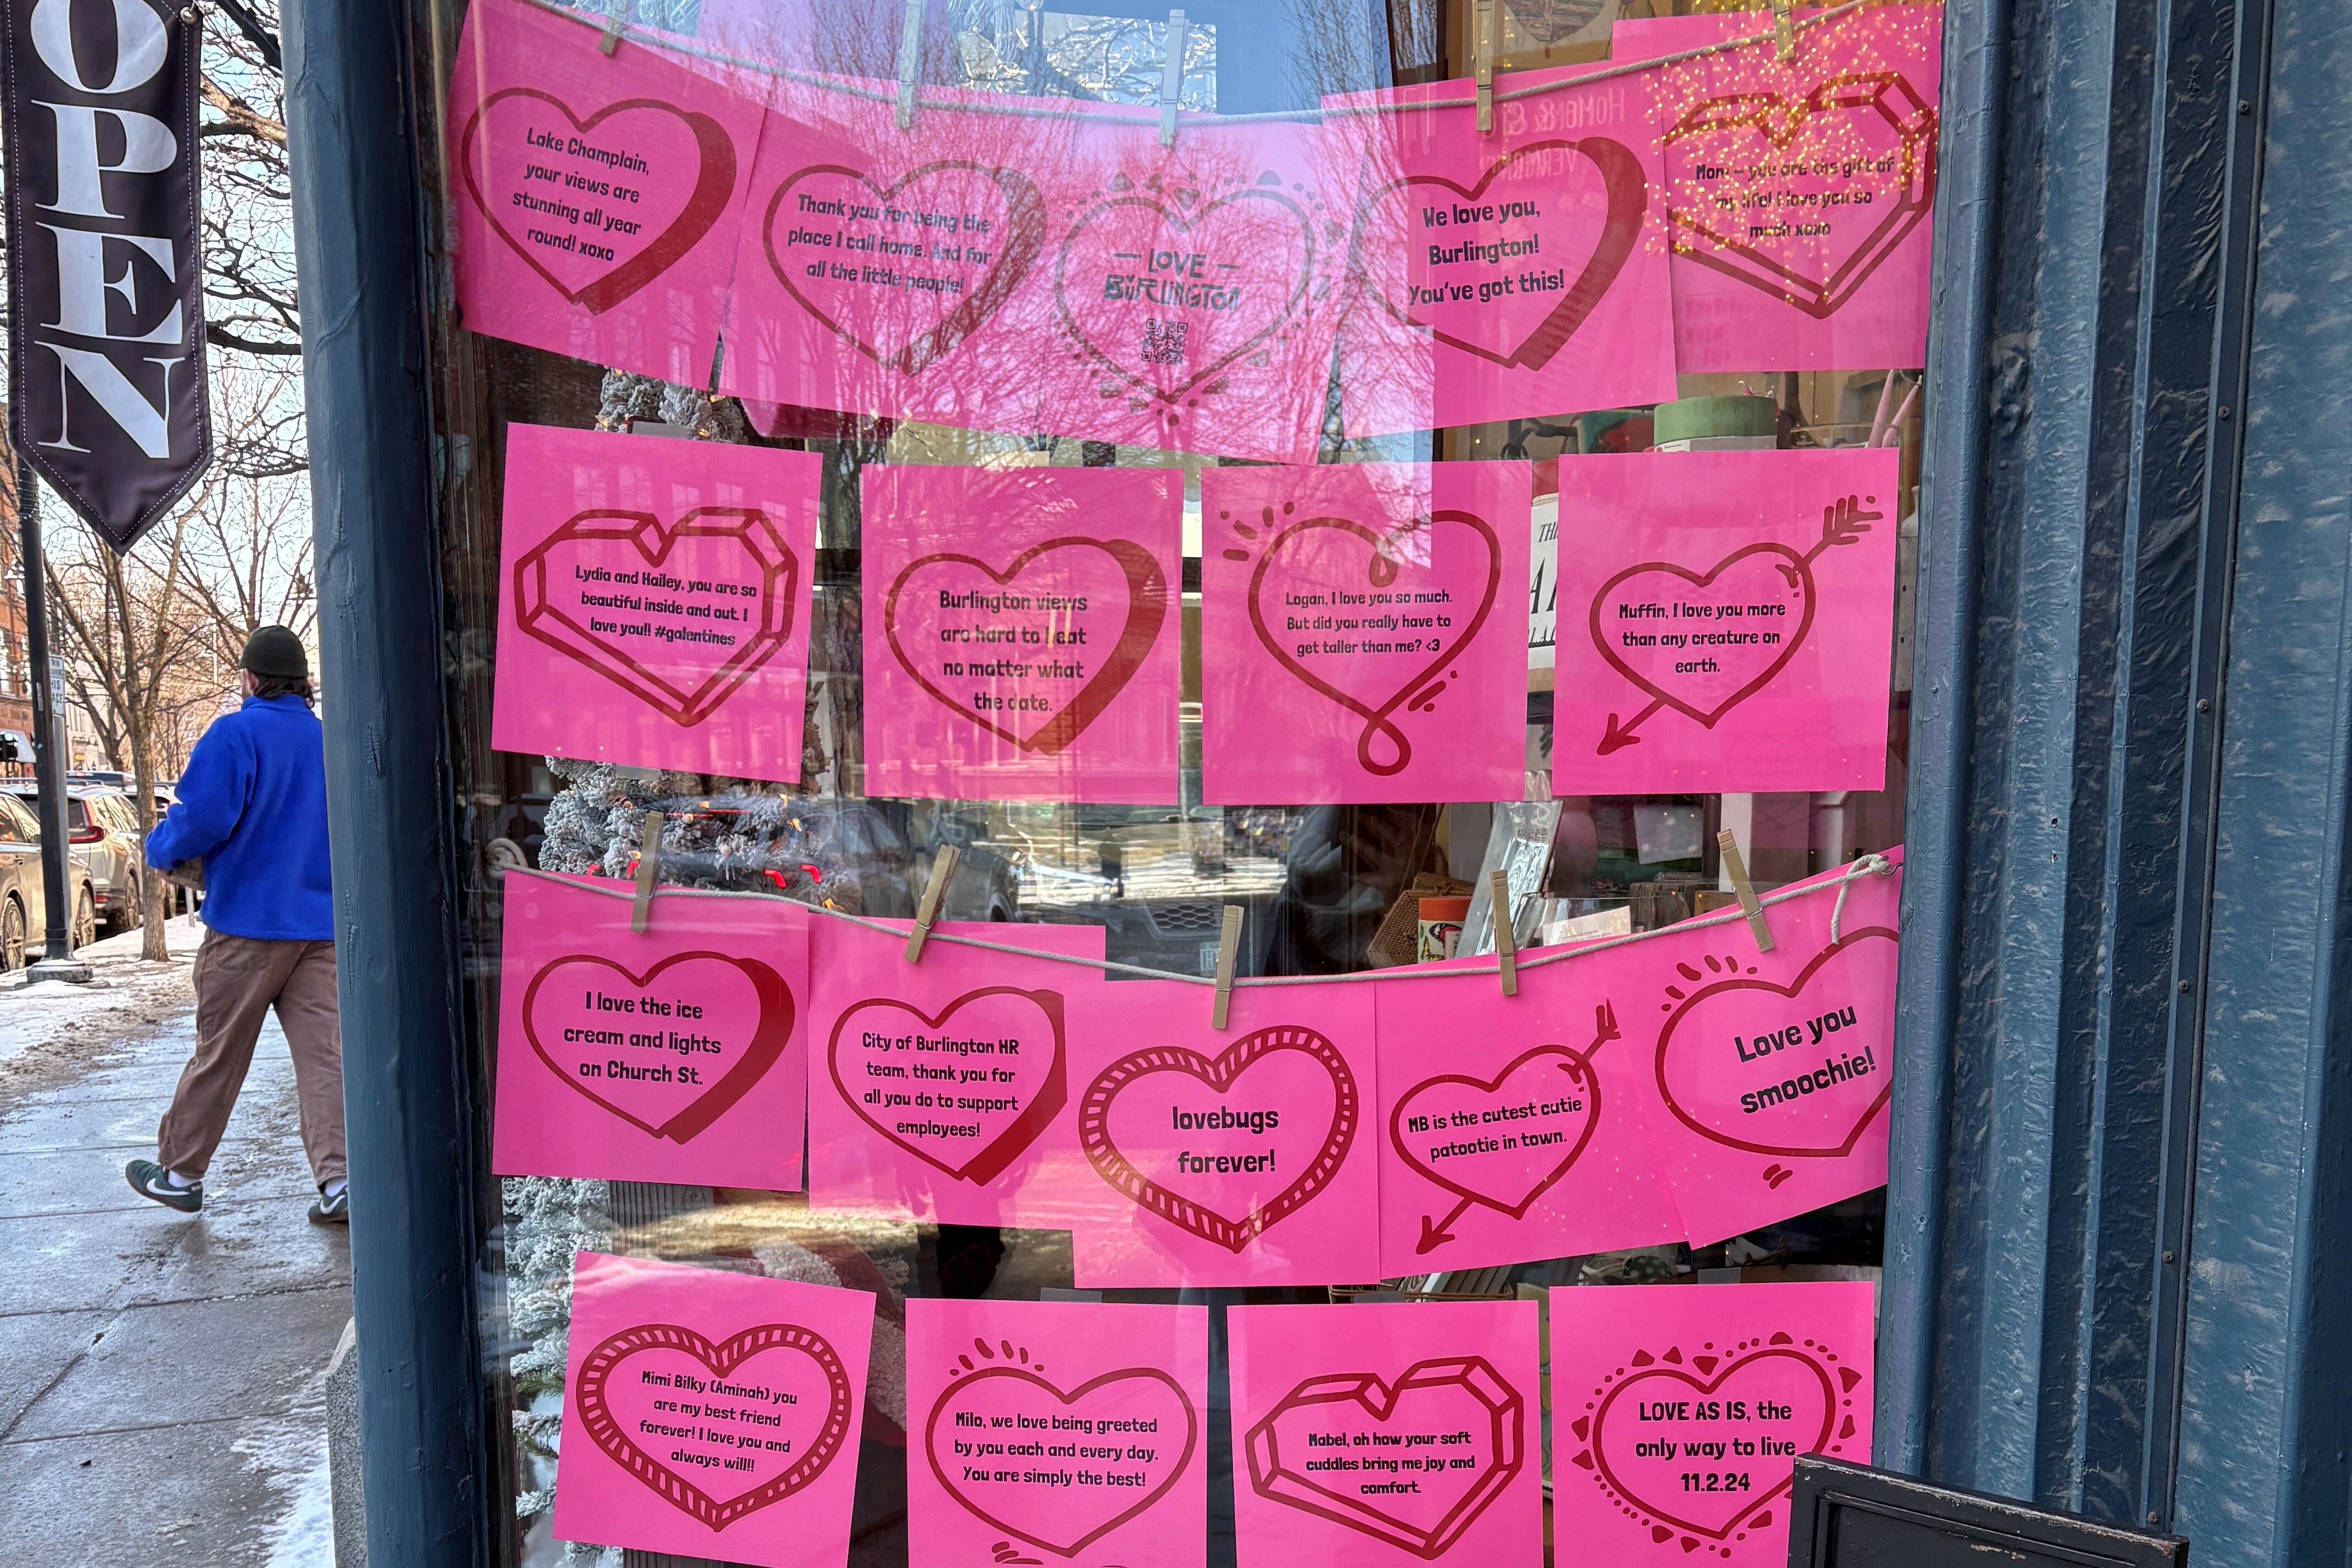 OPEN
Lake Champlain,
your views are
stunning all year
round! xoxo
Thank you for being the
place I call home. And for
all the little people!
— LOVE —
BURLINGTON
We love you,
Burlington!
You've got this!
Mom – you are the gift of
my life! I love you so
much xoxo
Lydia and Hailey, you are so
beautiful inside and out. I
love you!! #galentines
Burlington views
are hard to beat
no matter what
the date.
Logan, I love you so much.
But did you really have to
get taller than me? <3
Muffin, I love you more
than any creature on
earth.
I love the ice
cream and lights
on Church St.
City of Burlington HR
team, thank you for
all you do to support
employees!
lovebugs
forever!
MB is the cutest cutie
patootie in town.
Love you
smoochie!
Mimi Bilky (Aminah) you
are my best friend
forever! I love you and
always will!!
Milo, we love being greeted
by you each and every day.
You are simply the best!
Mabel, oh how your soft
cuddles bring me joy and
comfort.
LOVE AS IS, the
only way to live
11.2.24